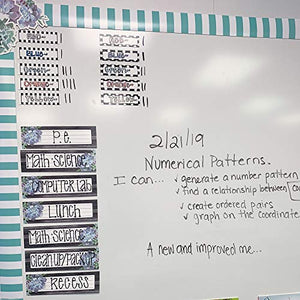 P.E.
Math-Science
Computer Lab
Lunch
Math-Science
Clean Up/Pack Up
Recess
2/21/19
Numerical Patterns.
I can... ✓ generate a number pattern
✓ find a relationship between
✓ create ordered pairs
✓ graph on the coordinate
A new and improved me...